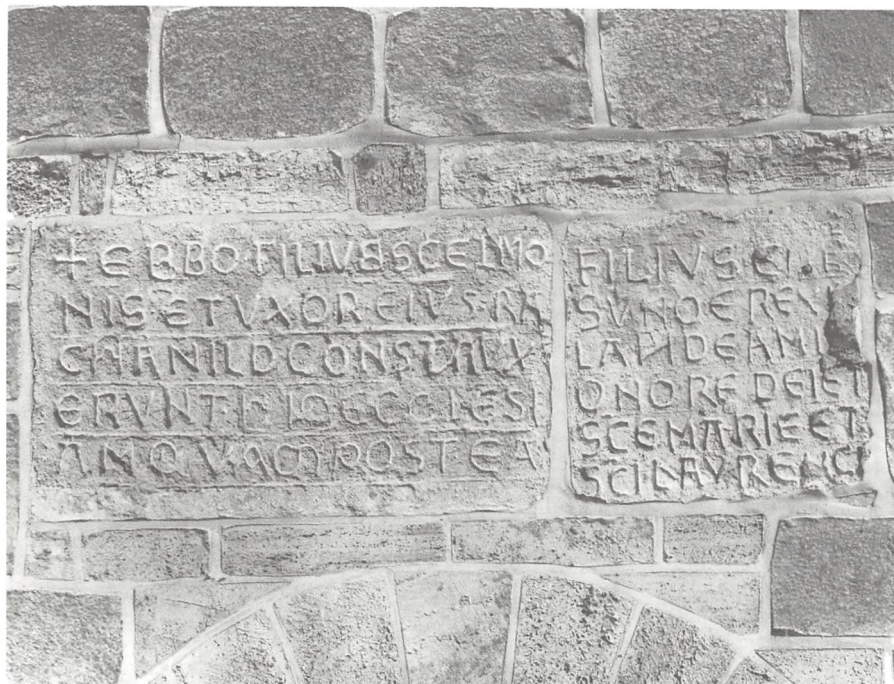 + EBBO·FILIVS SCELMO
NIS·ET VXOR·EIVS·RA
CHANILD CONSTRVX
ERVNT
ANQVAM POSTEA
FILIVS
LAPIDEAM
ONORE DEI ET
SCE MARIE ET
SCI LAVRENCI